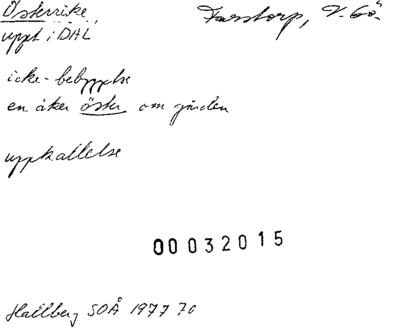 Österrike, Farstorp, V. Gö.
uppt i DAL
icke-bebyggelse
en åker öster om gården
uppkallelse
00032015
Hallberg SOÅ 1977 70